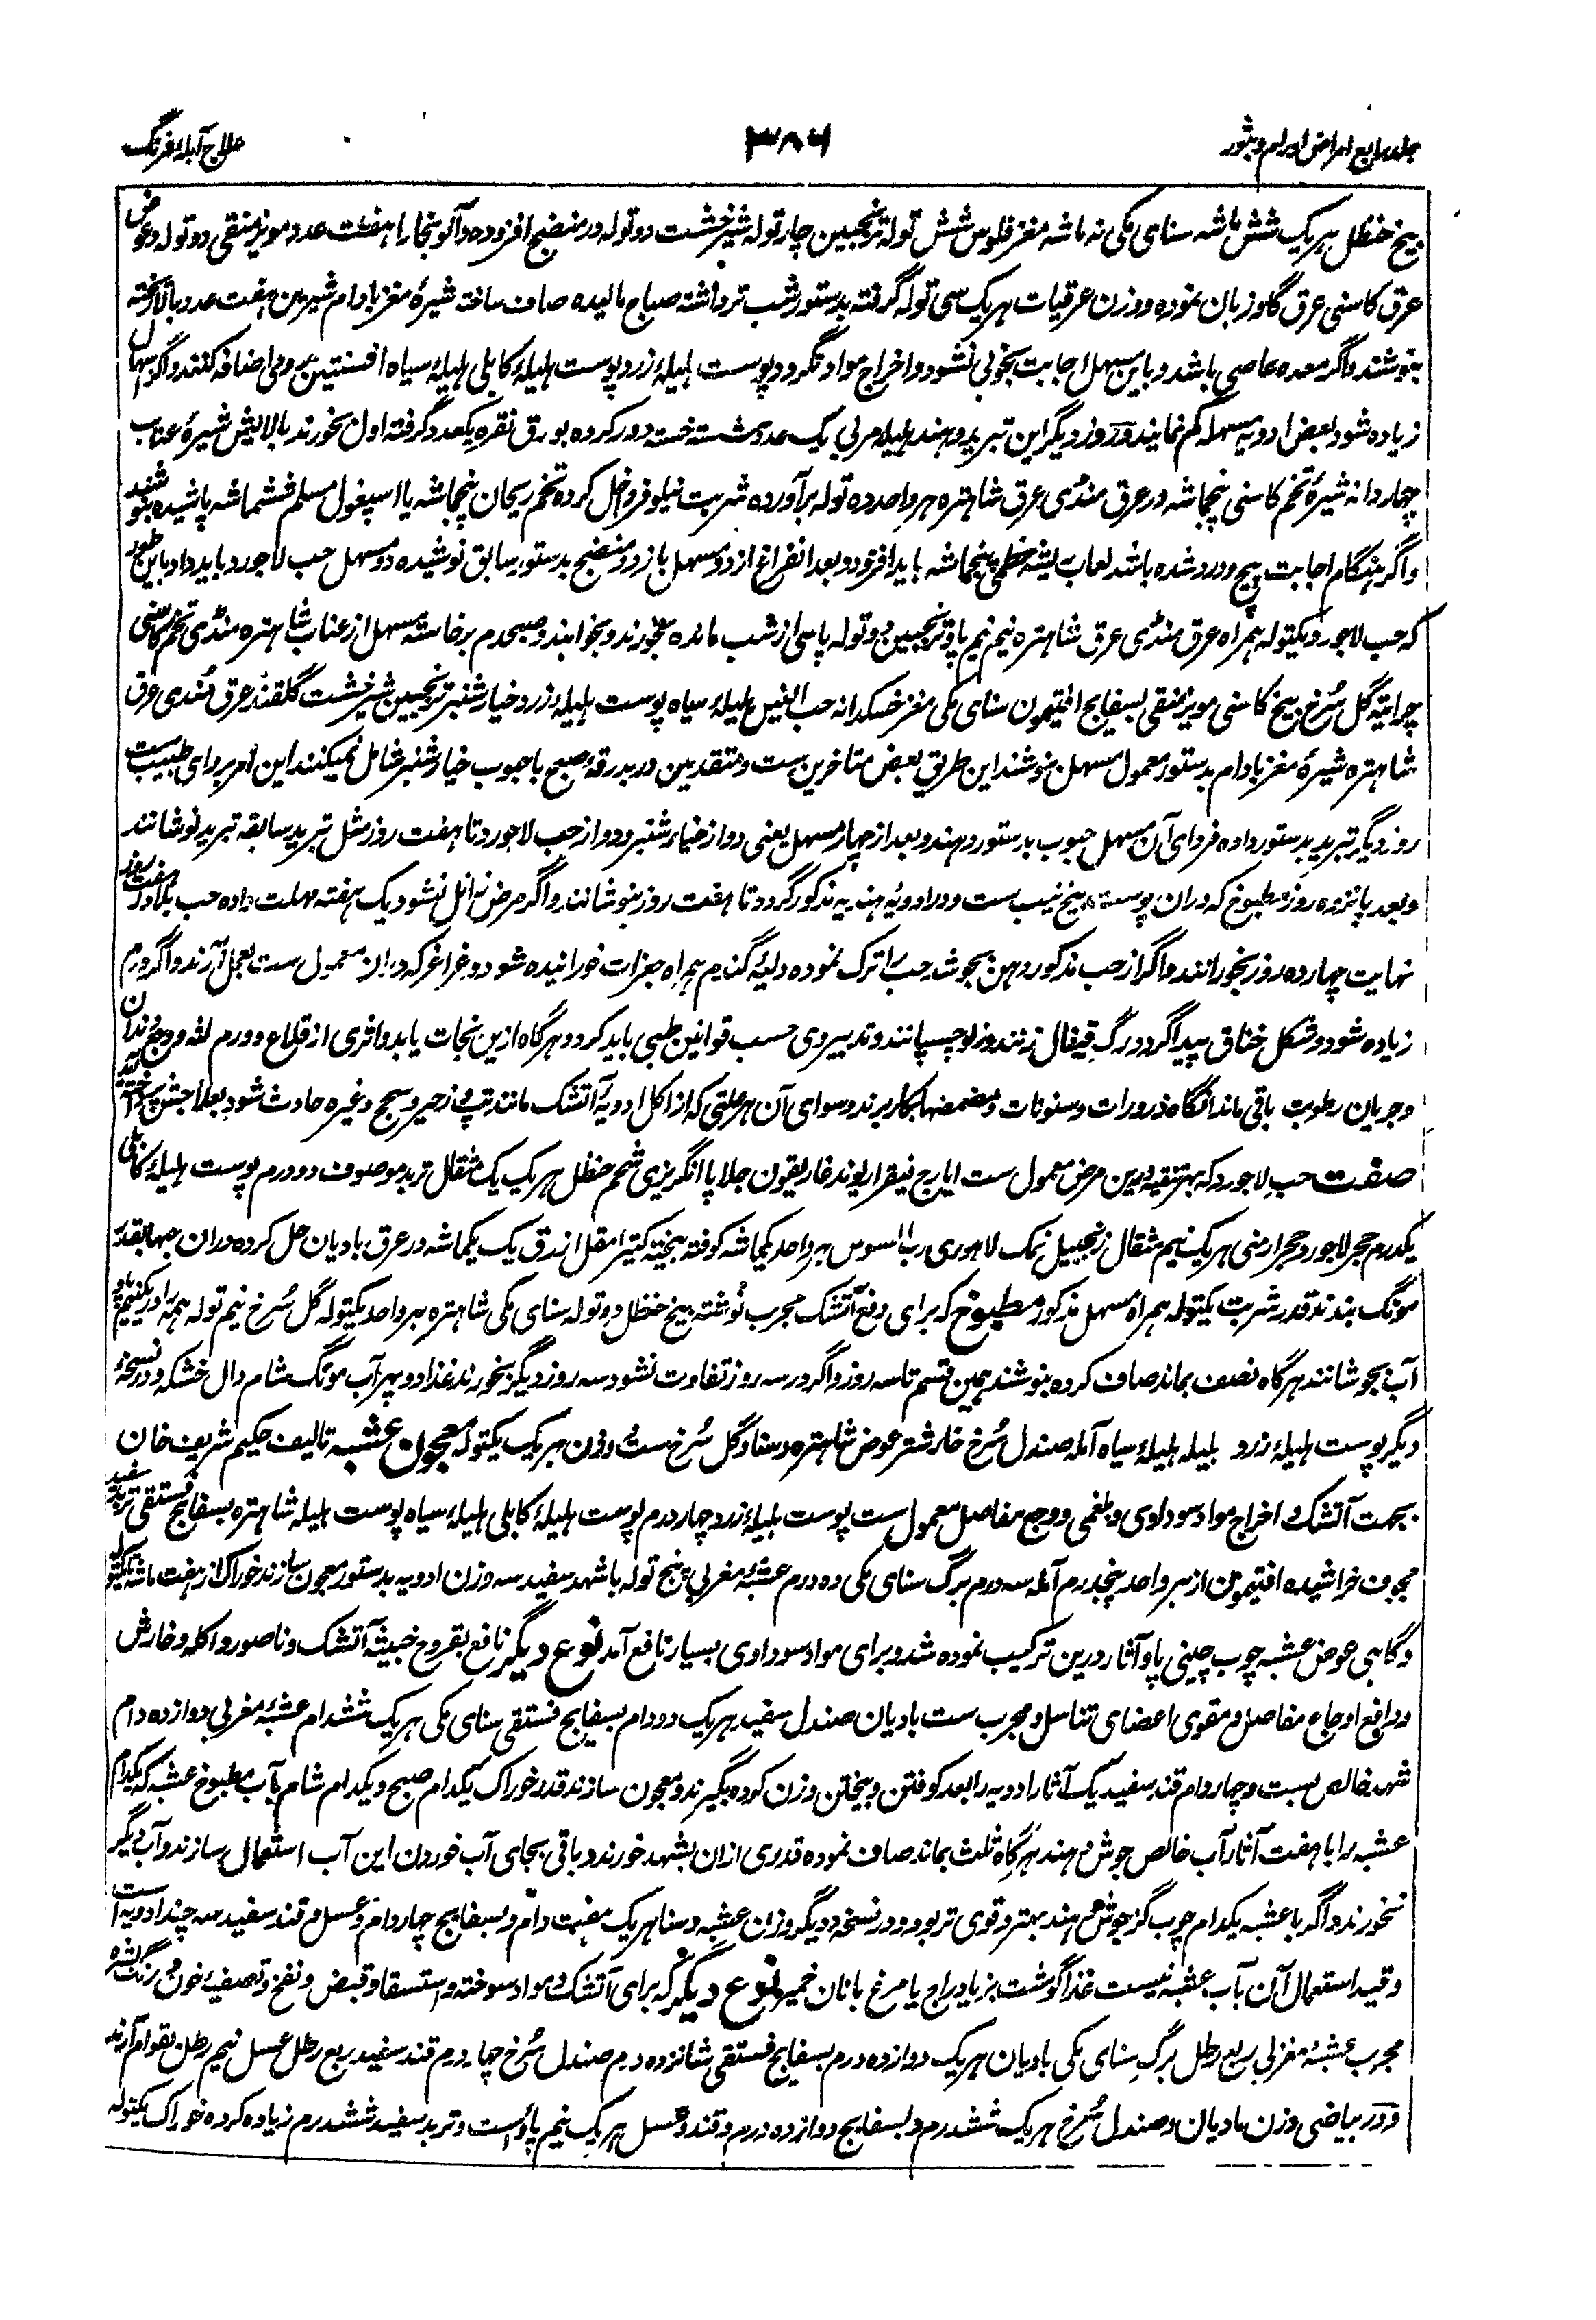 جلد رابع امراض اورام و بثور
۳۸۶
علاج آبلۂ فرنگ
بیخ حنظل ہر یک شش ماشہ سنای مکی نہ ماشہ مغز فلوس شش تولہ ترنجبین چار تولہ شیرخشت دو تولہ در منضج افزودہ و آلو بخارا ہفت عدد مویز منقی دو تولہ و عوض
عرق کاسنی عرق گاوزبان نمودہ و وزن عرقیات ہر یک سی تولہ گرفتہ بدستور شب تر داشتہ صباح مالیدہ صاف ساختہ شیرۂ مغز بادام شیرین ہفت عدد بالا ریختہ
بنوشند و اگر معدہ عاصی باشد و باین مسہل اجابت بخوبی نشود و اخراج مواد نگردد پوست ہلیلہ زرد پوست ہلیلۂ کابلی ہلیلۂ سیاہ افسنتین رومی اضافہ کنند و اگر اسہال
زیادہ شود بعض ادویہ مسہلہ کم نمایند و روز دیگر این تبرید دہند ہلیلہ مربی یک عدد شستہ خستہ دور کردہ بورق نقرہ یکعدد گرفتہ اول بخورند بالایش شیرۂ عناب
چہار دانہ شیرۂ تخم کاسنی پنجماشہ در عرق منڈی عرق شاہترہ ہر واحد دہ تولہ برآوردہ شربت نیلوفر داخل کردہ تخم ریحان پنجماشہ یا اسپغول مسلم ششماشہ پاشیدہ بنوشند
و اگر ہنگام اجابت پیچ و درد شدہ باشد لعاب ریشہ خطمی پنجماشہ باید افزود و بعد انفراغ از دو مسہل باز دو منضج بدستور سابق نوشیدہ دو مسہل حب لاجورد باید داد باین طور
کہ حب لاجورد یکتولہ ہمراہ عرق منڈی عرق شاہترہ نیم نیم پاؤ ترنجبین دو تولہ پاسی از شب ماندہ بخورند و بخوابند و صبحدم برخاستہ مسہل از عناب شاہترہ منڈی تخم کاسنی
چرایتہ گل سُرخ بیخ کاسنی مویز منقی بسفایج افتیمون سنای مکی مغز خسکدانہ حب النیل ہلیلۂ سیاہ پوست ہلیلۂ زرد خیارشنبر ترنجبین شیرخشت گلقند عرق منڈی عرق
شاہترہ شیرۂ مغز بادام بدستور معمول مسہل بنوشند این طریق بعض متاخرین ست و متقدمین در بدرقۂ صبح با حبوب خیارشنبر شامل نمیکنند این امر برای طبیب ست
روز دیگر تبرید بدستور دادہ فردای آن مسہل حبوب بدستور دہند و بعد از چہار مسہل یعنی دو از خیارشنبر و دو از حب لاجورد تا ہفت روز مثل تبرید سابقہ تبرید نوشانند
و بعد پانزدہ روز مطبوخ کہ دران پوست بیخ نیب ست و در ادویۂ ہندیہ مذکور گردد تا ہفت روز بنوشانند و اگر مرض زائل نشود یک ہفتہ مہلت دادہ حب بلادر ہفت روز
نہایت چہاردہ روز بخورانند و اگر از حب مذکور دہن بجوشد حب را ترک نمودہ دلیۂ گندم ہمراہ جغرات خورانیدہ شود و غراغر کہ دران معمول ست بعمل آرند و اگر ورم
زیادہ شود و شکل خناق پیدا گردد رگِ قیفال زنند و زلو چسپانند و تدبیر وی حسب قوانین طبی باید کرد و ہرگاہ ازین نجات یابد و اثری از قلاع و ورم لثہ و وجع دندان
و جریان رطوبت باقی ماند آنگاہ ذرورات و سنونات و مضمضہا بکار برند و سوای آن ہر علتی کہ از اکل ادویۂ آتشک مانند تپ و زحیر و سحج و غیرہ حادث شود بعلاجش پردازند
صفت حب لاجورد کہ بہر تنقیہ درین مرض معمول ست ایارج فیقرا ریوند غاریقون جلاپا انگریزی شحم حنظل ہر یک یک مثقال تربد موصوف دو درم پوست ہلیلۂ کابلی
یکدرم حجر لاجورد حجر ارمنی ہر یک نیم مثقال زنجبیل نمک لاہوری رب السوس ہر واحد یکماشہ کوفتہ بیختہ کتیرا مقل ازرق یک یکماشہ در عرق بادیان حل کردہ دران حبہا بقدر
مونگ بندند قدر شربت یکتولہ ہمراہ مسہل مذکور مطبوخ کہ برای دفع آتشک مجرب نوشتہ بیخ حنظل دو تولہ سنای مکی شاہترہ ہر واحد یکتولہ گل سُرخ نیم تولہ ہمہ را در یکنیم پاؤ
آب بجوشانند ہرگاہ نصف بماند صاف کردہ بنوشند ہمین قسم تا سہ روز و اگر در سہ روز تفاوت نشود سہ روز دیگر بخورند غذا دوپہر آب مونگ شام دال خشکہ و در نسخۂ
دیگر پوست ہلیلۂ زرد بلیلہ ہلیلۂ سیاہ آملہ صندل سُرخ خارشتر عوض شاہترہ و سنا و گل سُرخ ست و وزن ہر یک یکتولہ معجون عشبہ تالیف حکیم شریف خان
بجہت آتشک و اخراج مواد سوداوی و بلغمی و وجع مفاصل معمول ست پوست ہلیلۂ زرد چہار درم پوست ہلیلۂ کابلی ہلیلۂ سیاہ پوست بلیلہ شاہترہ بسفایج فستقی تربد سفید
مجوف خراشیدہ افتیمون از ہر واحد پنجدرم آملہ سہ درم برگ سنای مکی دہ درم عشبۂ مغربی پنج تولہ با شہد سفید سہ وزن ادویہ بدستور معجون سازند خوراک از ہفت ماشہ تا یکتولہ
و گاہی عوض عشبہ چوب چینی پاؤ آثار درین ترکیب نمودہ شد و برای مواد سوداوی بسیار نافع آمد نوع دیگر نافع بقروح خبیثۂ آتشک و ناصور و اکلہ و خارش
و دافع اوجاع مفاصل و مقوی اعضای تناسل و مجرب ست بادیان صندل سفید ہر یک دو دام بسفایج فستقی سنای مکی ہر یک ششدام عشبۂ مغربی دوازدہ دام
شہد خالص بست و چار دام قند سفید یک آثار ادویہ را بعد کوفتن و بیختن وزن کردہ بگیرند و معجون سازند قدر خوراک یکدام صبح و یکدام شام بآب مطبوخ عشبہ کہ یکدام
عشبہ را با ہفت آثار آب خالص جوش دہند ہرگاہ ثلث بماند صاف نمودہ قدری ازان بشہد خورند و باقی بجای آب خوردن این آب استعمال سازند و آب دیگر
نخورند و اگر با عشبہ یکدام چوب گز جوش دہند بہتر و قوی تر بود و در نسخۂ دیگر وزن عشبہ و سنا ہر یک ہفت دام و بسفایج چہار دام و عسل و قند سفید سہ چند ادویہ است
و قید استعمال آن بآب عشبہ نیست غذا گوشت بز یا دراج یا مرغ با نان خمیر نوع دیگر کہ برای آتشک و مواد سوختہ و استسقا و قبض و نفخ و تصفیۂ خون و رنگ بشرہ
مجرب عشبۂ مغربی ربع رطل برگِ سنای مکی بادیان ہر یک دوازدہ درم بسفایج فستقی شانزدہ درم صندل سُرخ چہار درم قند سفید ربع رطل عسل نیم رطل بقوام آرند
و در بیاضی وزن بادیان و صندل سُرخ ہر یک ششدرم و بسفایج دوازدہ درم و قند و عسل ہر یک نیم پاؤ است و تربد سفید ششدرم زیادہ کردہ خوراک یکتولہ